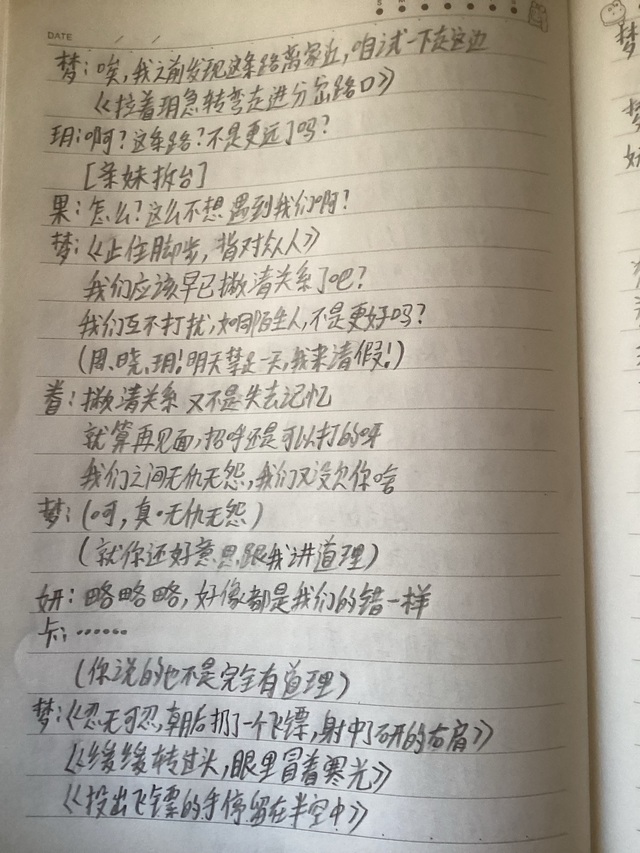 DATE / /
梦：唉，我之前发现这条路离家近，咱试一下走这边
《拉着玥急转弯走进分岔路口》
玥：啊？这条路？不是更远了吗？
[亲妹拆台]
果：怎么？这么不想遇到我们啊？
梦：《止住脚步，背对众人》
我们应该早已撇清关系了吧？
我们互不打扰，如同陌生人，不是更好吗？
(周、晓、玥！明天禁足一天，我来请假！)
眷：撇清关系 又不是失去记忆
就算再见面，招呼还是可以打的呀
我们之间无仇无怨，我们又没欠你啥
梦：(呵，真·无仇无怨)
(就你还好意思跟我讲道理)
妍：略略略，好像都是我们的错一样
卡：……
(你说的也不是完全有道理)
梦：《忍无可忍，朝后扔了一个飞镖，射中了研的右肩》
《缓缓转过头，眼里冒着寒光》
《投出飞镖的手停留在半空中》